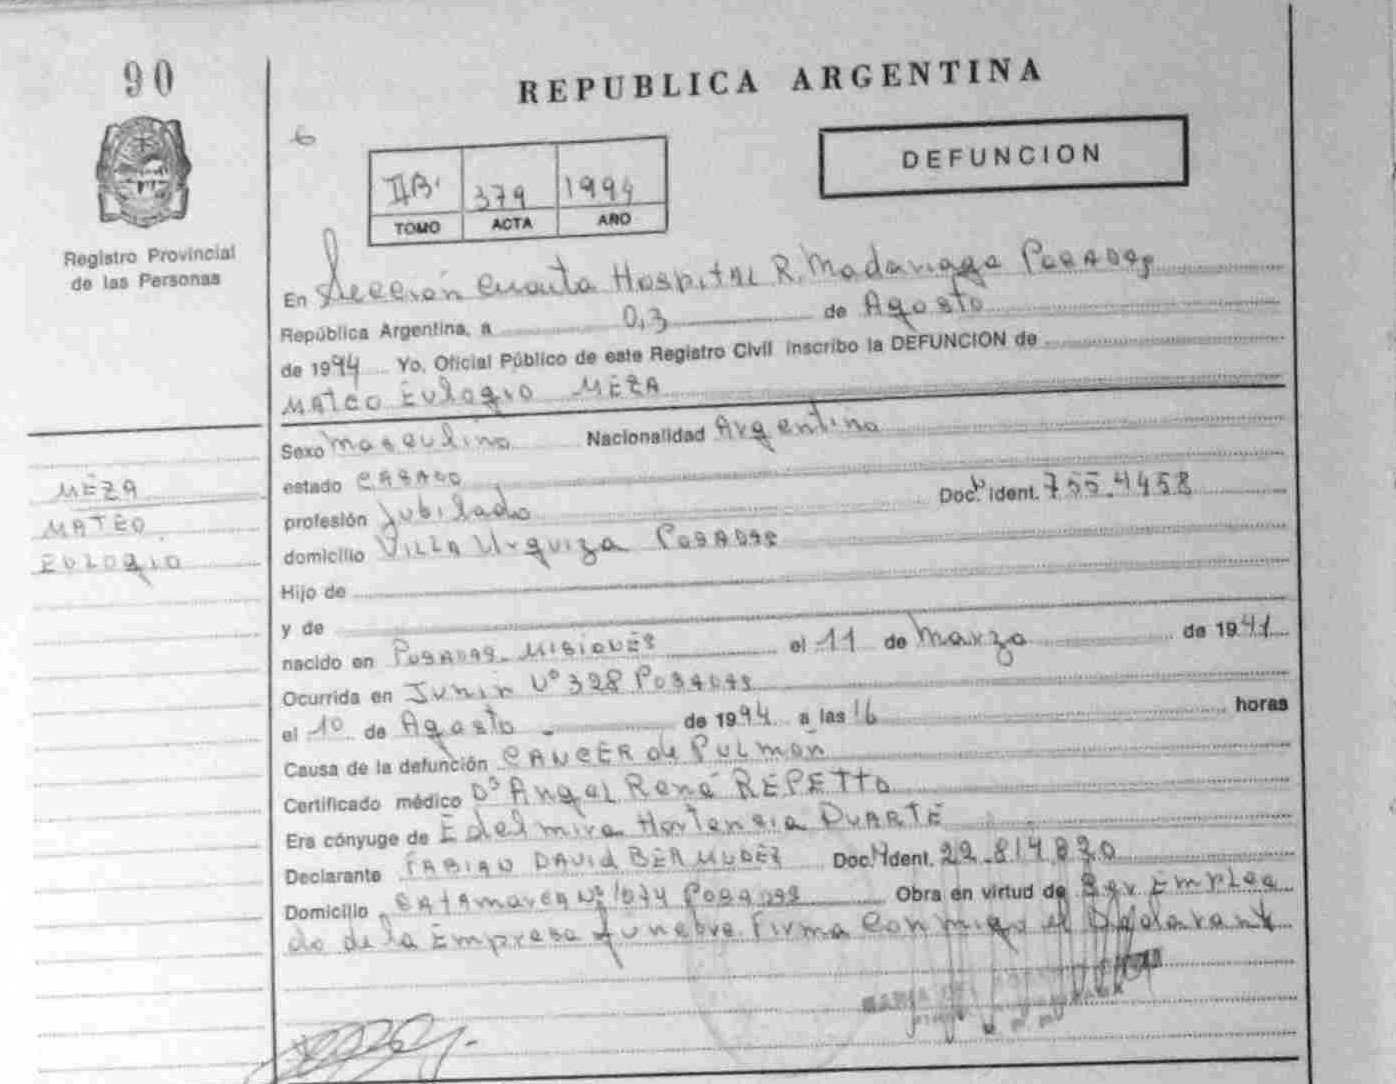 90
REPUBLICA ARGENTINA
6
DEFUNCION
IIB. 379 1994
TOMO ACTA AÑO
Registro Provincial
de las Personas
En Sección Cuarta Hospital R. Madariaga Posadas
República Argentina, a 03 de Agosto
de 1994 Yo, Oficial Público de este Registro Civil inscribo la DEFUNCION de
MATEO Eulogio MEZA
Sexo masculino Nacionalidad Argentino
MEZA
MATEO
EULOGIO
estado CASADO
profesión Jubilado Doc. Ident. 755.4458
domicilio VILLA Urquiza POSADAS
Hijo de
y de
nacido en POSADAS - MISIONES el 11 de Marzo de 1941
Ocurrida en Junin Nº 328 POSADAS
el 1º de Agosto - de 1994 a las 16 horas
Causa de la defunción CANCER de Pulmón
Certificado médico Dº Angel René REPETTO
Era cónyuge de Edelmira Hortensia DUARTE
Declarante FABIAN DAVID BERMUDEZ Doc. Ident. 22.814.830
Domicilio CATAMARCA Nº 1074 POSADAS Obra en virtud de Ser Emplea
do de la Empresa funebre. Firma conmigo el Declarante